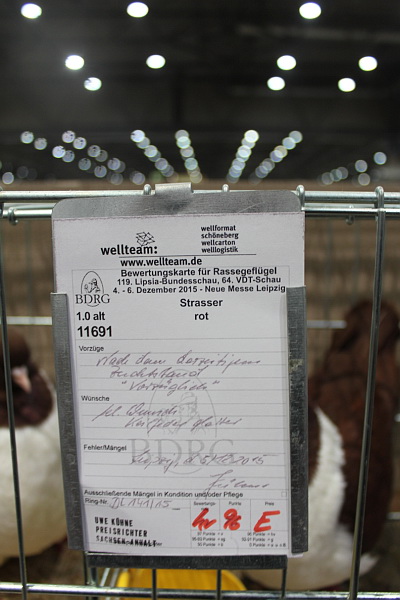 wellteam:
wellformat
schöneberg
wellcarton
welllogistik
www.wellteam.de
Bewertungskarte für Rassegeflügel
119. Lipsia-Bundesschau, 64. VDT-Schau
4. - 6. Dezember 2015 - Neue Messe Leipzig
BDRG
Strasser
1.0 alt rot
11691
Vorzüge
Nach dem derzeitigen
Zuchtstand
"Vorzüglich"
Wünsche
BDRG
Fehler/Mängel
Ausschließende Mängel in Kondition und/oder Pflege
Ring-Nr.
Bewertungs-Note Punkte Preis
UWE KÜHNE
PREISRICHTER
SACHSEN-ANHALT
hv 96 E